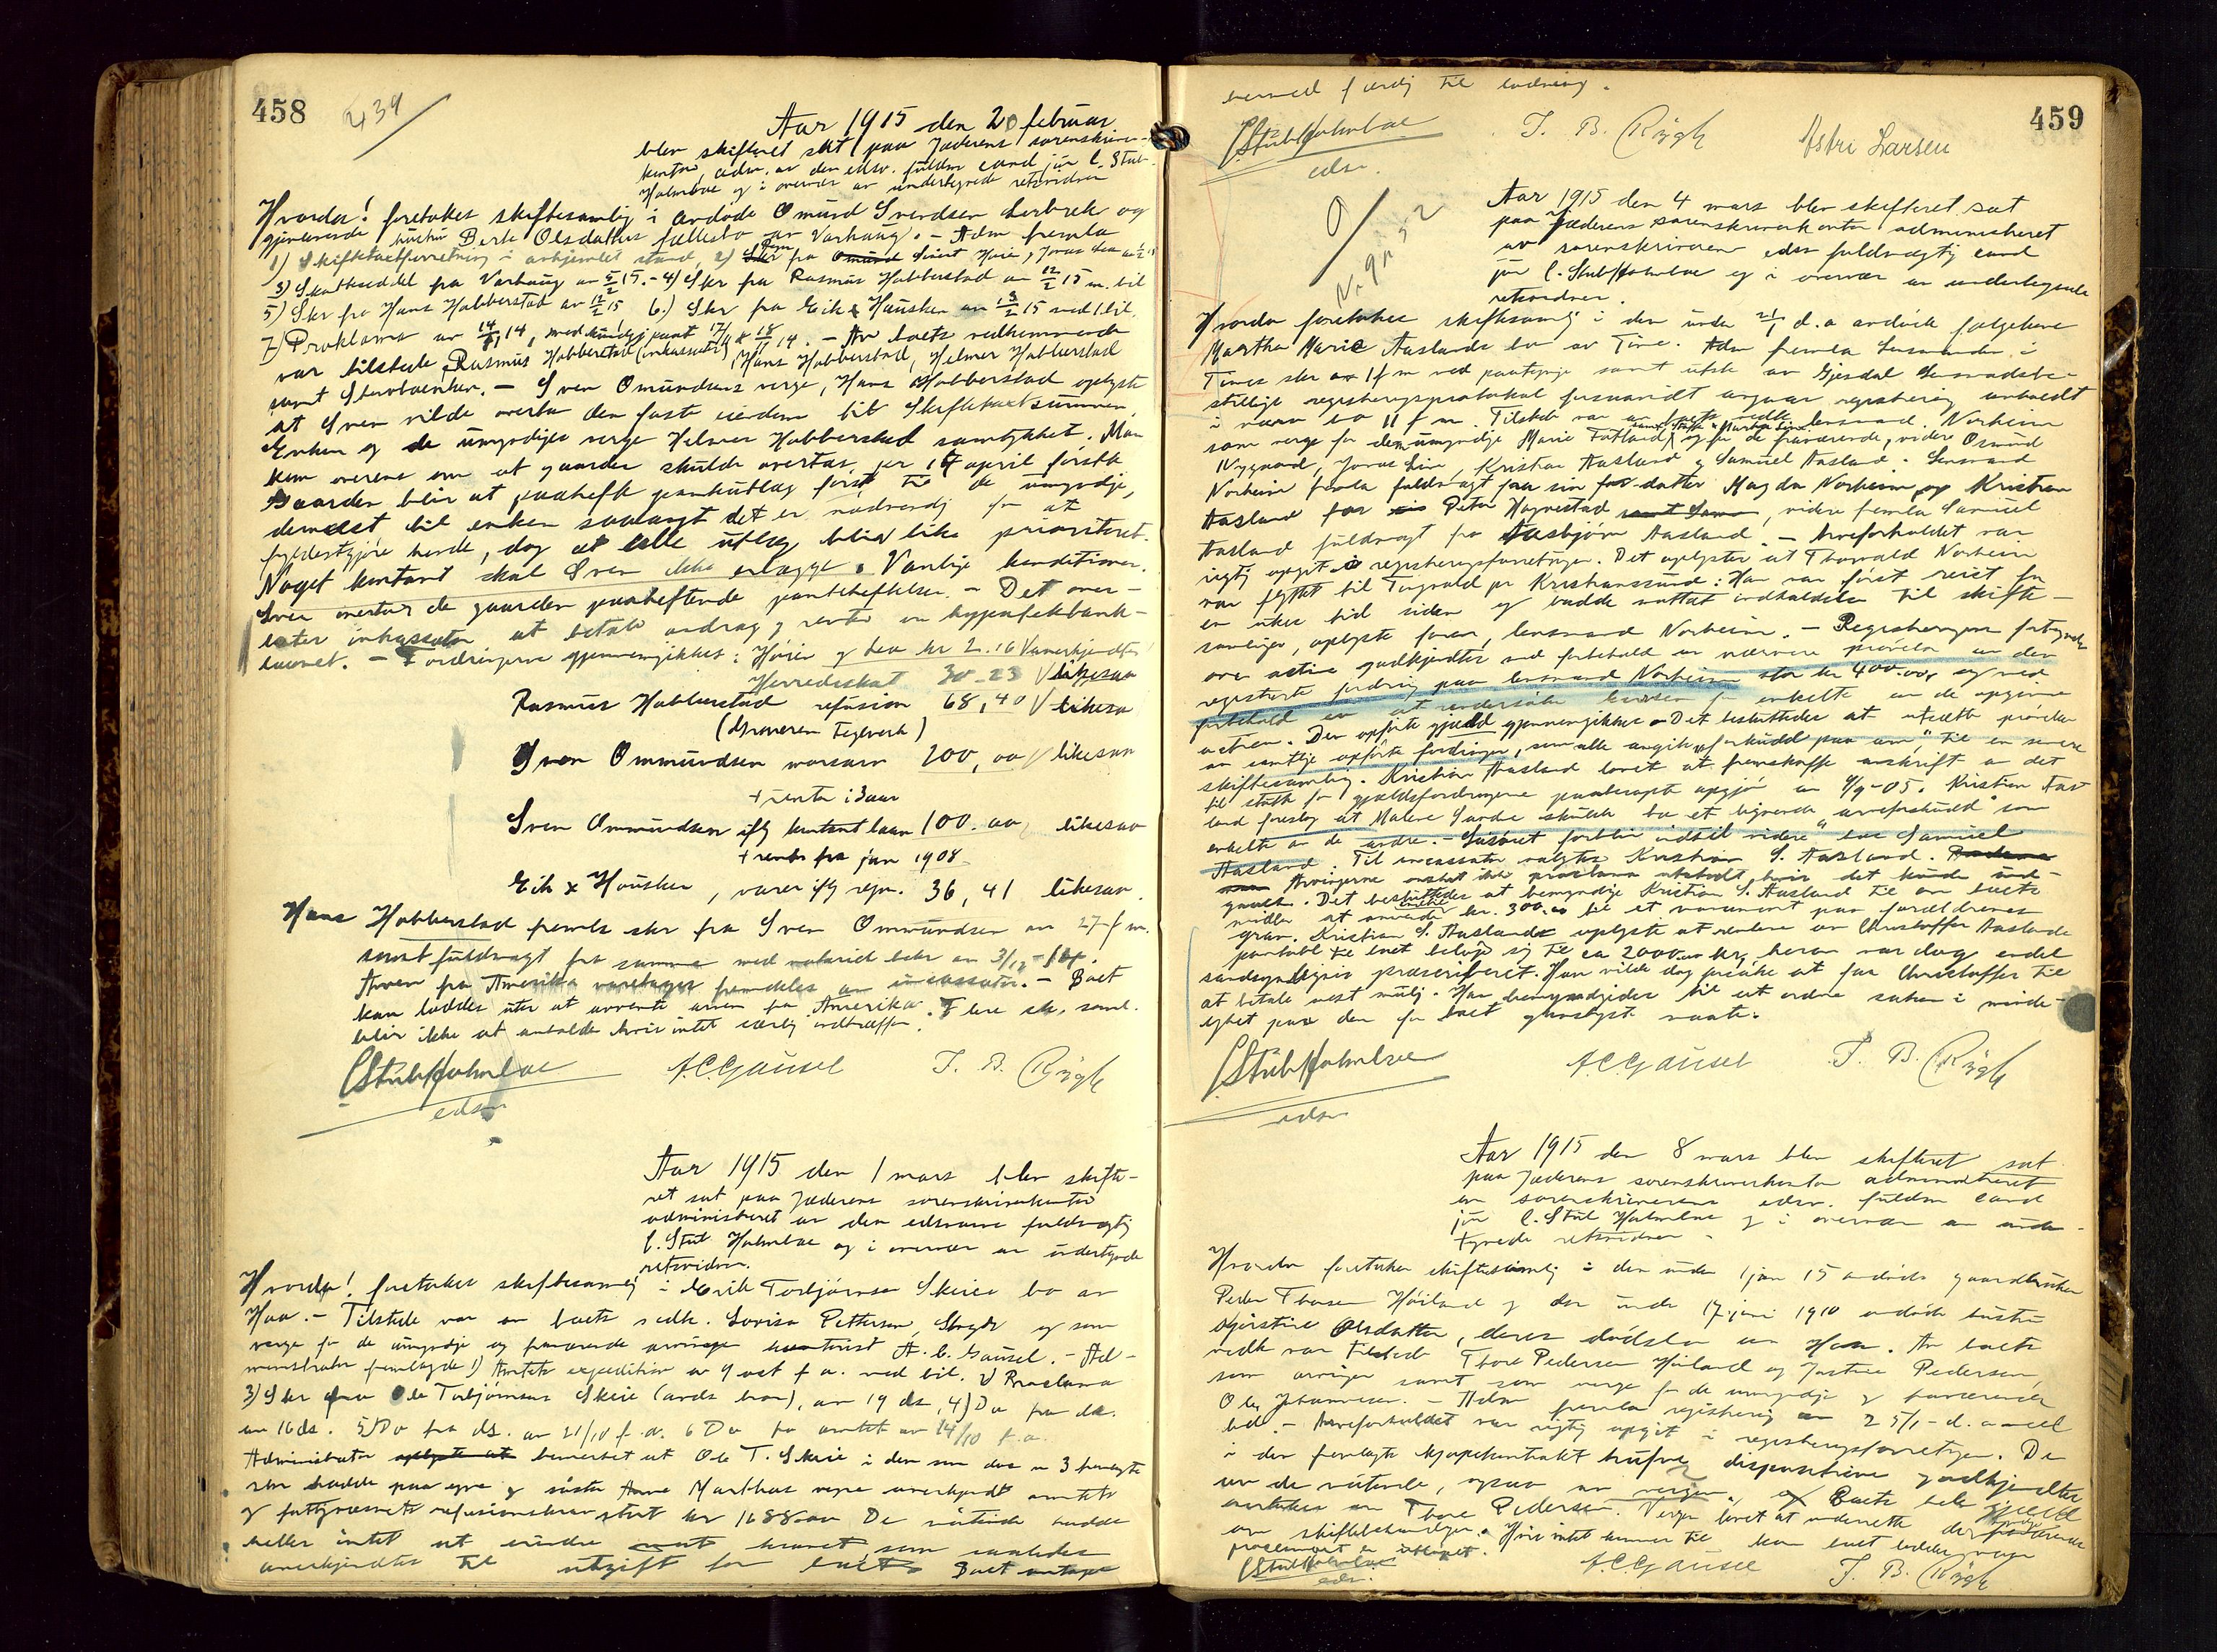 458
439
Aar 1915 den 20 februar
blev skifteret sat paa Jæderens sorenskriver-
kontor, adm. av den edsv. fuldm cand jur C. Stub-
Holmboe og i overvær av undertegnede retsvidner
Hvorda! foretokes skiftesamling i avdøde Omund Svendsen Lerbrek og
gjenlevende hustru Berte Olsdatters fællesbo av Varhaug. - Adm fremla
1) Skiftetaxtforretning i avhjemlet stand, 2)
3) Skatteseddel fra Varhaug av 5/2 15. - 4) Skr fra Rasmus Hobberstad av 12/2 15 m. bil
5) Skr fra Hans Hobberstad av 12/2 15 6.) Skr fra Eik & Hausken av 13/2 15 med 1 bil.
7) Proklama av 14/ 14, med kundgj paat 17/ & 18/11 14. - Av boets vedkommende
var tilstede Rasmus Hobberstad (inkassator) Hans Hobberstad, Helmer Hobberstad
samt Sterboenken. - Sven Omundsens verge, Hans Hobberstad oplyste
at Sven vilde overta den faste eiendom til Skiftetaxtsummen.
Enken og de umyndiges verge Helmer Hobberstad samtykket. Man
kom overens om at gaarden skulde overtas pr 14 april førstk
Gaarden blir at paahefte panteutlæg først til de umyndige,
dernæst til enken saalangt det er nødvendig for at
fyldestgjøre hende, dog at alle utlæg blir like prioriteret.
Noget kontant skal Sven ikke erlægge. Vanlige konditioner.
Sven overtar de gaarden paaheftende pantebeftelser. - Det over-
later inkassator at betale avdrag & renter av hypotekbank-
laanet. - Fordringerne gjennemgikkes: Høien & kr 2.16 V anerkjendtes
Herredeskat 30-23 V likesaa
Rasmus Hobberstad refusion 68,40 V likesaa
(Graveren Teglverk)
Sven Ommundsen 200,00 V likesaa
+ rente i 3 aar
Sven Ommundsen iflg kontant laan 100.00 likesaa
+ rente fra jan 1908
Eik & Hausken, varer iflg regn. 36,41 likesaa
Hans Hobberstad fremla skr fra Sven Ommundsen av 27 f m.
samt fuldmagt fra samme med notariel bekr av 3/12-14.
Arven fra Amerika varetages fremdeles av incassator. - Boet
kan loddes uten at avvente arven fra Amerika. Flere sk. saml.
blir ikke at avholde hvis intet særlig indtræffer.
CStubHolmboe A.C.Gausel T. B. Rygh
edsv
Aar 1915 den 1 mars blev skifte-
ret sat paa Jæderens sorenskriverkontor
administreret av den edsvorne fuldmægtig
C. Stub Holmboe og i overvær av undertegnede
retsvidner.
Hvorda! foretokes skiftesamling i Erik Torbjørnsen Skeies bo av
Haa. - Tilstede var av boets vedk. Lovisa Pettersen, og som
verge for de umyndige og fraværende arvinger A. C. Gausel. - Ad-
ministrator fremlagde 1) Amtets expedition av 9 oct f a. med bil. 2) Proclama
3) Skr fra Ole Torbjørnsen Skeie (avds bror), av 19 ds, 4) Do fra do.
av 16 ds. 5) Do fra ds. av 21/10 f.a. 6 Do fra amtet av 14/10 f.a.
Administrator oplyste at bemerket at Ole T. Skeie i den som dok n 3 fremlagte
skr hadde paa egne & søster Anne Marthas vegne anerkjendt amtets
& fattigvæsenets refusionskrav stort kr 1688.00 De møtende hadde
heller intet at erindre mot kravet som saaledes
anerkjendtes til utgift for boet. Boet antages
459
hermed færdig til lodning.
CStubHolmboe T. B. Rygh Astri Larsen
edsv.
0/
Nr 9
Aar 1915 den 4 mars blev skifteret sat
paa Jæderens sorenskriverkontor administreret
av sorenskriverens edsv fuldmægtig cand
jur C. StubHolmboe og i overvær av undertegnede
retsvidner.
Hvorda foretokes skiftesamling i den under 21/1 d.a avdøde
Martha Marie Aaslands bo av Time. Adm fremla lensmanden i
Times skr av 1 f m ved paategning samt utskr av Gjesdal lensmandsbe-
stillings registreringsprotokol forsaavidt angaar registrering avholdt
i bo 11 f m. Tilstede var av boets vedk lensmand Norheim
som verge for den umyndige Marie Fotland og for de fraværende, videre Osmund
Nygaard, Jonas Lima, Kristian Aasland & Samuel Aasland. Lensmand
Norheim fremla fuldmagt fra sin datter Magda Norheim og Kristian
Aasland for Peter Hognestad, videre fremla Samuel
Aasland fuldmagt fra Aasbjørn Aasland. - Arveforholdet var
rigtig opgit i registreringsforretningen. Det oplystes at Thorvald Norheim
var flyttet til Tingvold pr Kristianssund: Han var først reist for
en ukes tid siden og hadde mottat indkaldelse til skifte-
samlingen, oplyste faren, lensmand Norheim. - Registreringens fortegnelse
over activa godkjendtes med forbehold av nærmere prøvelse av den
registrerte fordring paa lensmand Norheim stor kr 400.00, og med
forbehold av at undersøke av enkelte av de opgivne
activa. Den opførte gjæld gjennemgikkes. Det besluttedes at utsætte prøvelsen
av samtlige opførte fordringer, som alle angik "forskudd paa arv", til en senere
skiftesamling. Kristian Aasland lovet at fremskaffe avskrift av det
til støtte for gjældsfordringerne paaberopte opgjør av 4/9-05. Kristian Aas-
land foreslog at Malene Sande skulde ha et lignende "arveforskudd" som
enkelte av de andre. - Løsøret forblir indtil videre hos Samuel
Aasland. Til incassator valgtes Kristian S. Aasland.
Arvingerne ønsket ikke proclama utstedt, hvis det kunde und-
gaaes. Det besluttedes at bemyndige Kristian S. Aasland til av boets
midler at anvende indtil kr. 300.00 til et monument paa forældrenes
grav. Kristian S. Aasland oplyste at rentene av Christoffer Aaslands
pantobl til boet beløp sig til ca 2000.00 kr, herav var dog endel
sandsynligvis præscriberet. Han vilde dog forsøke at faa Christoffer til
at betale mest mulig. Han bemyndigedes til at ordne saken i minde-
lighet paa den for boet gunstigste maate.
CStubHolmboe A.C.Gausel T. B. Rygh
edsv
Aar 1915 den 8 mars blev skifteret sat
paa Jæderens sorenskriverkontor administreret
av sorenskriverens edsv. fuldm cand
jur C. Stub Holmboe og i overvær av under-
tegnede retsvidner.
Hvorda foretokes skiftesamling i den under 1 jan 15 avdøde gaardbruker
Peder Thorsen Høiland og den under 17 juni 1910 avdøde hustru
Kjerstine Olsdatter, deres dødsbo av Haa. Av boets
vedk var tilstede Thore Pedersen Høiland og Justine Pedersen,
som arvinger samt som verge for de umyndige & fraværende
Ole Johannesen. - Adm fremla registrering av 25/1-d.a med
bil. - Arveforholdet var rigtig opgit i registreringsforretningen. De
i den fremlagte kjøpekontrakt trufne dispositioner godkjendtes
av de møtende, ogsaa av vergen, og Boets hele gjæld
overtokes av Thore Pedersen. Vergen lovet at underrette de fraværende
om skiftebehandlingen. Hvis intet kommer til kan boet loddes naar
proclamaet er utløpet.
CStubHolmboe A.C.Gausel T. B. Rygh
edsv.